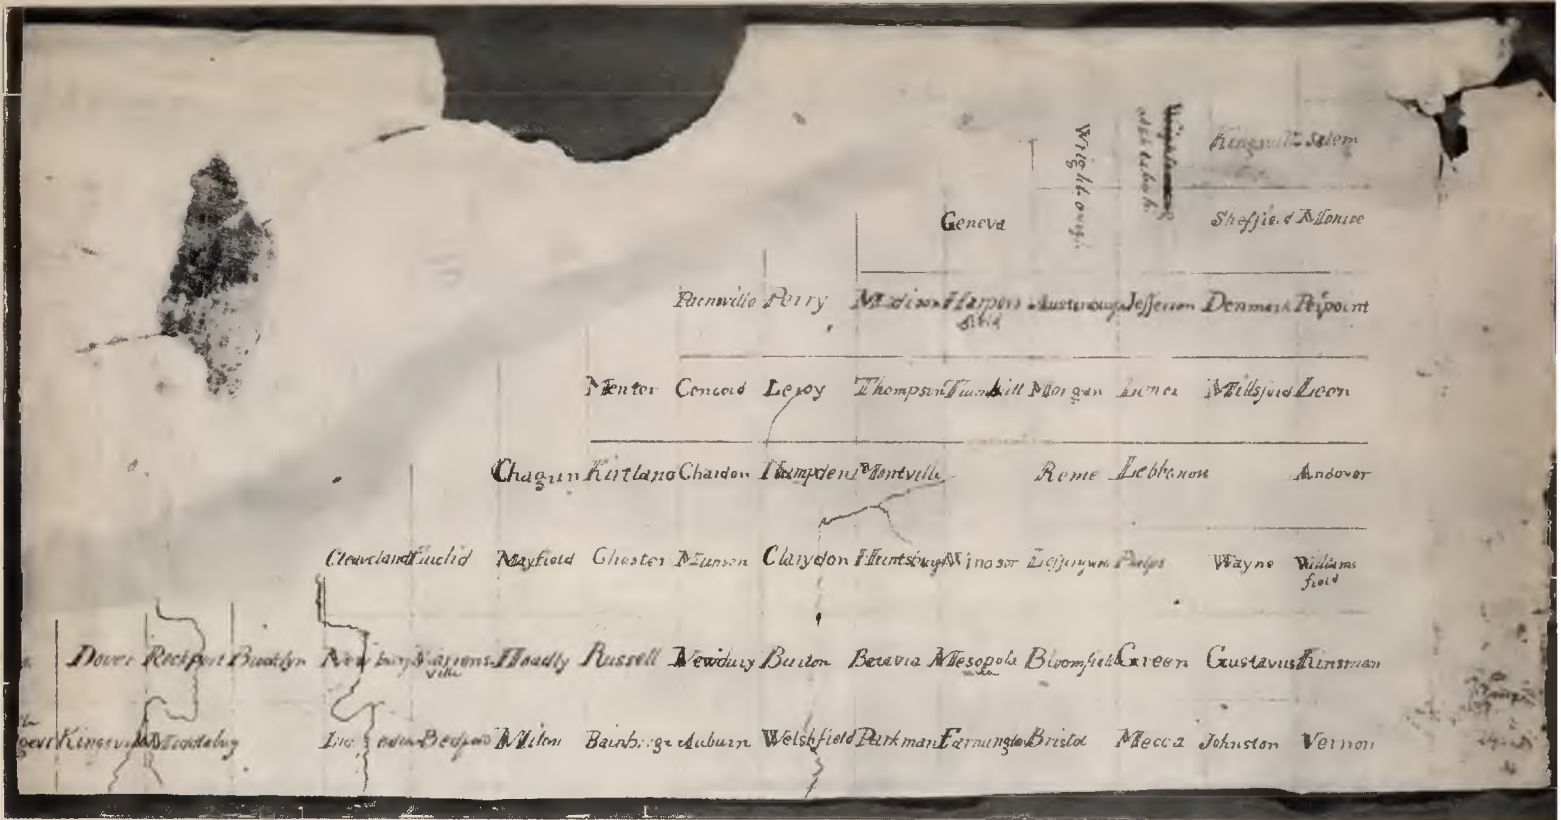 Wrightsburgh Ashtabula Kingsville Salem
Geneva Sheffield Monroe
Painsville Perry Madison Harpers field Austenburg Jefferson Denmark Peirpoint
Menter Concord Leroy Thompson Trumbull Morgan Lenox Millsford Leon
Chagrin Kirtland Chardon Hampden Montville Rome Lebbanon Andover
Cleaveland Euclid Mayfield Chester Munson Clarydon Huntsburg Windsor Leffingwell Phelps Wayne Williams field
Dover Rockport Brooklyn Newburg Warrens ville Hoadly Russell Newbury Burton Batavia Mesopota mia Bloomfield Green Gustavus Kinsman
Kingsville Bedford Milon Bainbrige Auburn Welshfield Parkman Farmington Bristol Mecca Johnston Vernon